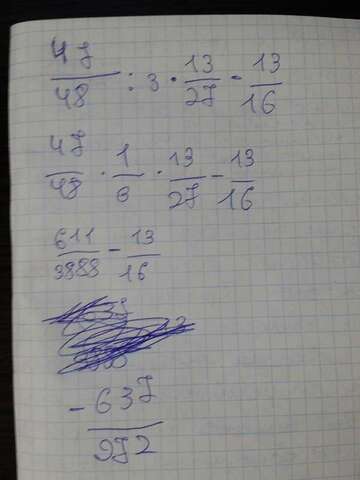 47/48 : 3 · 13/27 - 13/16
47/48 · 1/3 · 13/27 - 13/16
611/3888 - 13/16
- 637/972